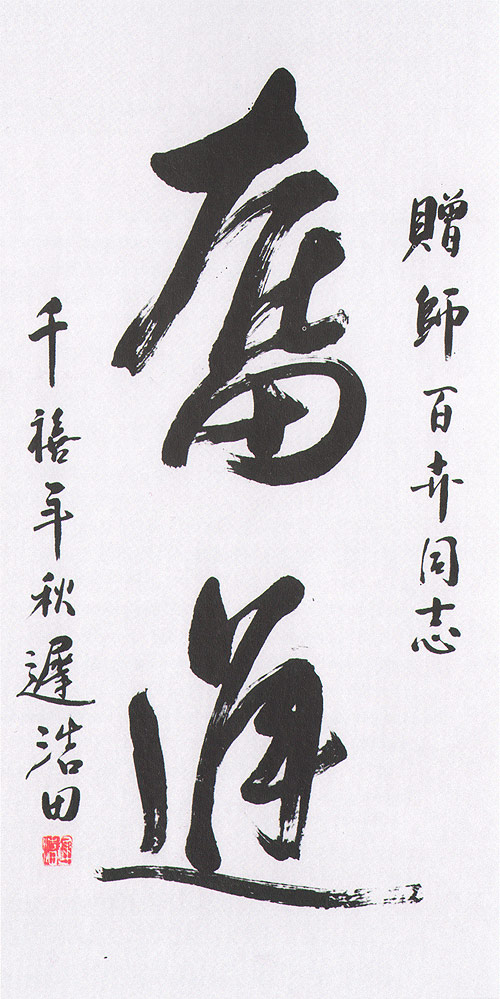 贈師百卉同志
奮進
千禧年秋遲浩田